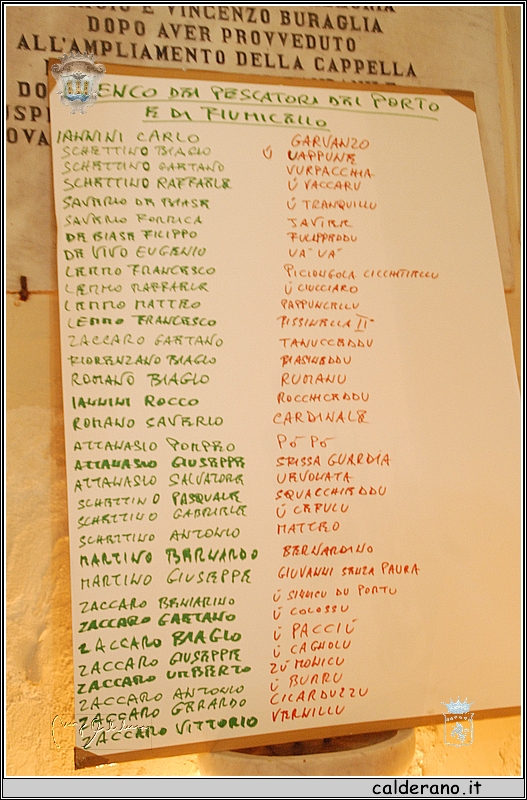 E VINCENZO BURAGLIA
DOPO AVER PROVVEDUTO
ALL'AMPLIAMENTO DELLA CAPPELLA
ELENCO DEI PESCATORI DEL PORTO
E DI FIUMICELLO
IANNINI CARLO GARVANZO
SCHETTINO BIAGIO U VAPPUNE
SCHETTINO GAETANO VURPACCHIA
SCHETTINO RAFFAELE Ù VACCARU
SAVERIO DE BIASE Ù TRANQUILLU
SAVERIO FORMICA SAVIERE
DE BIASE FILIPPO FULIPPODDU
DE VIVO EUGENIO VA' VA'
LEMMO FRANCESCO PICIONGOLA CICCHETIELLU
LEMMO RAFFAELE Ù CIUCCIARO
LEMMO MATTEO PAPPUNCELLU
LEMMO FRANCESCO PISSINELLA II°
ZACCARO GAETANO TANUCCEDDU
FIORENZANO BIAGIO BIASINEDDU
ROMANO BIAGIO RUMANU
IANNINI ROCCO ROCCHICEDDU
ROMANO SAVERIO CARDINALE
ATTANASIO POMPEO PO' PO'
ATTANASIO GIUSEPPE SPISSA GUARDIA
ATTANASIO SALVATORE URVONATA
SCHETTINO PASQUALE SQUACCHIEDDU
SCHETTINO GABRIELE Ù CEFULU
SCHETTINO ANTONIO MATTEO
MARTINO BERNARDO BERNARDINO
MARTINO GIUSEPPE GIUVANNI SENZA PAURA
ZACCARO BENIAMINO Ù SINDICU DU PORTU
ZACCARO GAETANO Ù COLOSSU
ZACCARO BIAGIO Ù PACCIÙ
ZACCARO GIUSEPPE Ù CAGNOLU
ZACCARO UMBERTO ZÙ MONICU
ZACCARO ANTONIO Ù BURRU
ZACCARO GERARDO CICARDUZZU
ZACCARO VITTORIO VERNILLU
calderano.it